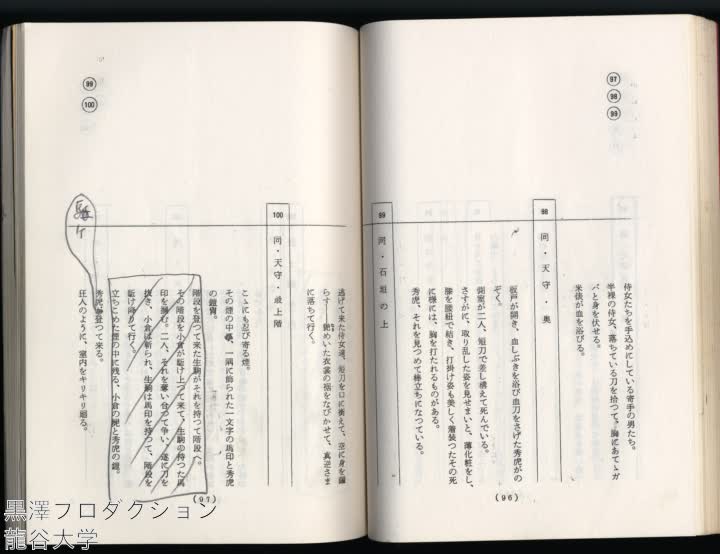 97
98
99
侍女たちを手込めにしている寄手の男たち。
半裸の侍女、落ちている刀を拾つて、胸にあてゝガ
バと身を伏せる。
米俵が血を浴びる。
98 同・天守・奥
板戸が開き、血しぶきを浴び血刀をさげた秀虎がの
ぞく。
側室が二人、短刀で差し構えて死んでいる。
さすがに、取り乱した姿を見せまいと、薄化粧をし、
膝を腰紐で結き、打掛け姿も美しく着装つたその死
に様には、胸を打たれるものがある。
秀虎、それを見つめて棒立ちになつている。
99 同・石垣の上
(96)
99
100
逃げて来た侍女達、短刀を口に銜えて、空に身を躍
らす――艶めいた衣裳の裾をなびかせて、真逆さま
に落ちて行く。
100 同・天守・最上階
こゝにも忍び寄る煙。
その煙の中、一隅に飾られた一文字の馬印と秀虎
の鎧櫃。
階段を登つて来た生駒がそれを持つて階段へ。
その階段を小倉が駈け上つて来て、生駒の持つた馬
印を掴む。二人、それを奪い合つて争い、遂に刀を
抜き、小倉は斬られ、生駒は馬印を持つて、階段を
駈け降りて行く。
立ちこめた煙の中に残る、小倉の屍と秀虎の鎧。
秀虎が登つて来る。
狂人のように、室内をキリキリ廻る。
(97)
黒澤プロダクション
龍谷大学